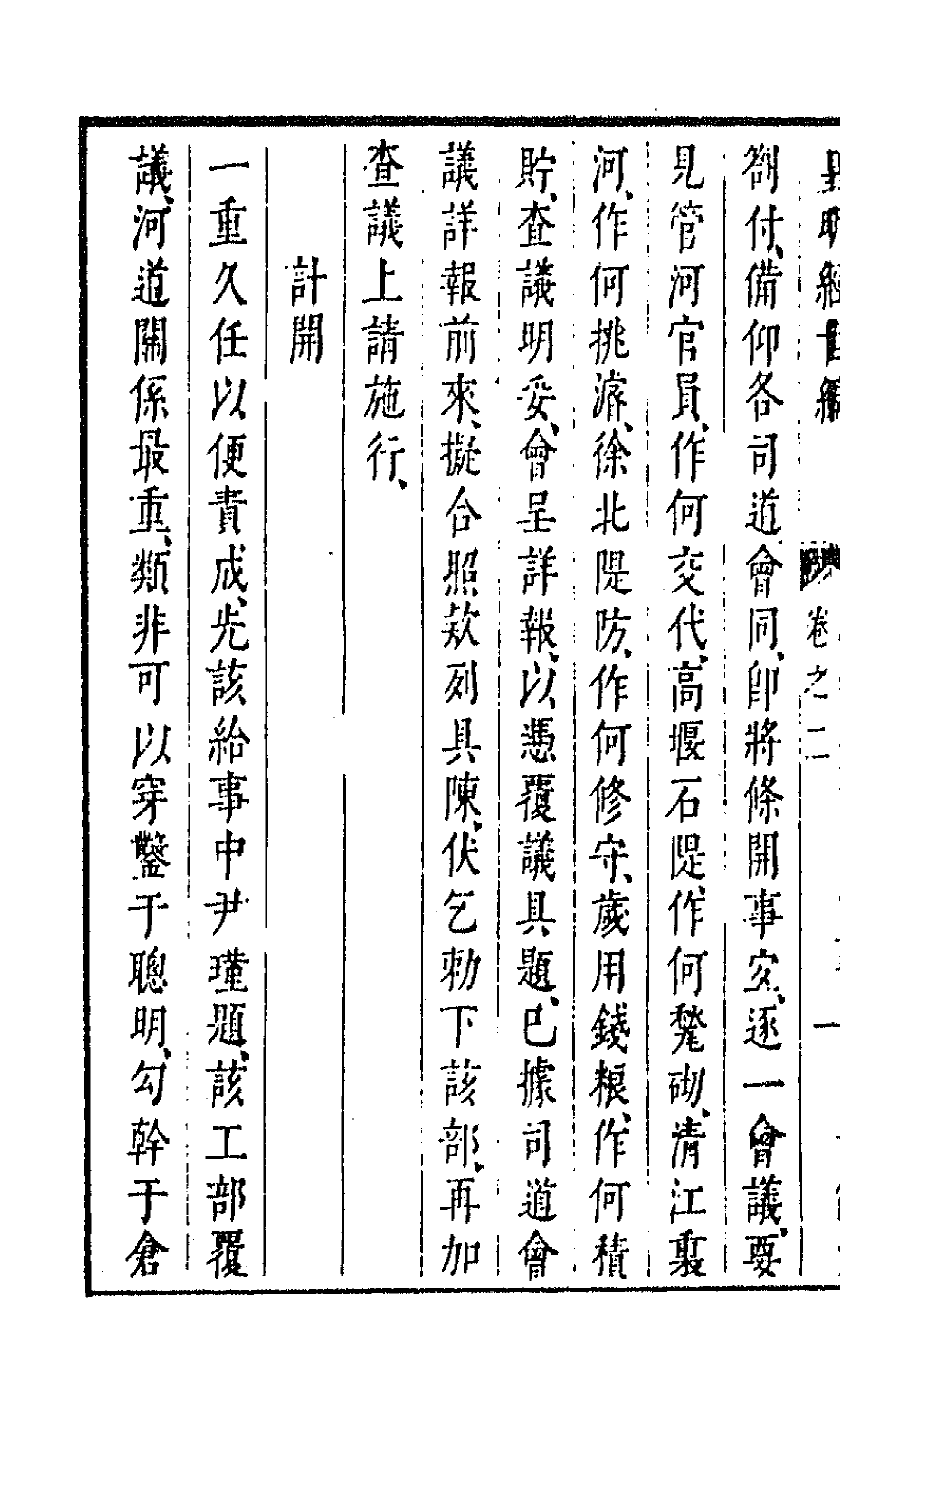 皇明經世編 卷之二 一
劄付、備仰各司道會同、卽將條開事宐、逐一會議、要
見管河官員、作何交代、高堰石隄、作何甃砌、清江裏
河、作何挑濬、徐北隄防、作何修守、歲用錢粮、作何積
貯、查議明妥、會呈詳報、以憑覆議具題、已據司道會
議詳報前來、擬合照欵列具陳、伏乞勅下該部、再加
查議上請施行、
計開
一重久任以便責成、先該給事中尹瑾題、該工部覆
議、河道關係最重、類非可以穿鑿于聰明、勾幹于倉